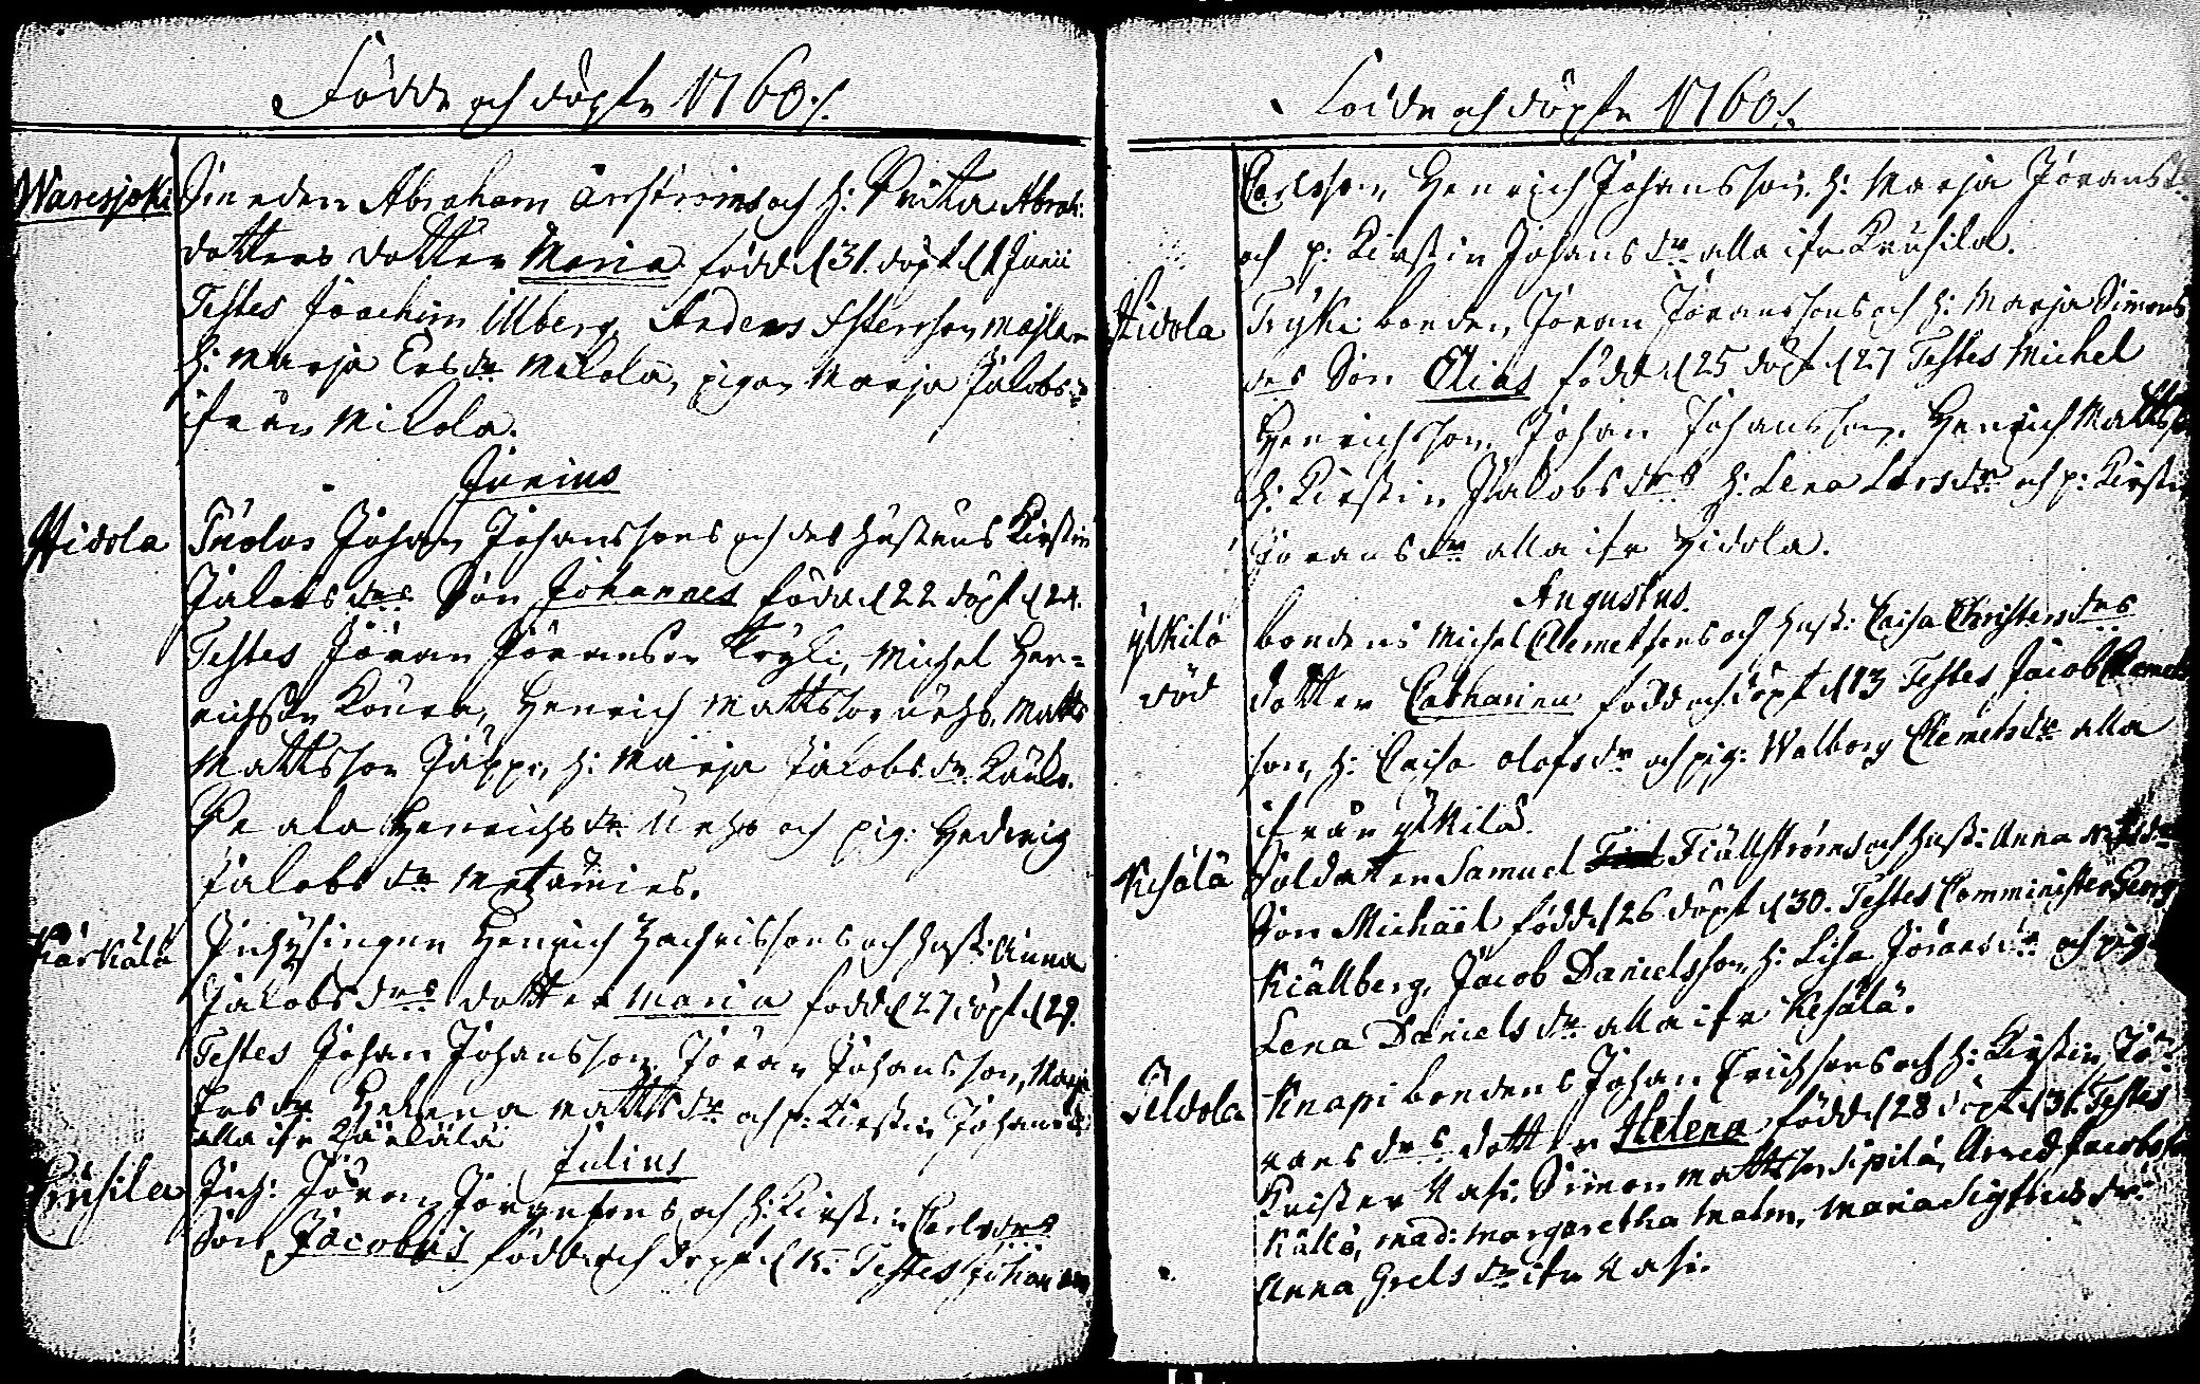 Födde och döpte 1760.
Waresjoki Smeden Abraham och h: Brita Abrah:
dotters dotter Maria född d 31. döpt d 1 Junii
Testes Joachim Ulberg, Anders
h: Marja Ersdr Mikola, pigan Marja Jacobsdr
ifrån Mikola.
Junius
Hidola Johan Johanssons och des hustrus Kirstin
Jacobsdrs Son Johannes född d 22 döpt d 24.
Testes Jöran Jöransson Tryki, Michel Hen=
richsson Henrich Mattsson Matts
Mattsson Jäppi, h: Marja Jacobsdr
Beata Henrichsdr och pig: Hedwig
Jacobsdr
Kärkälä Inhysingen Henrich Zachrissons och hust: Anna
Jacobsdrs dotter Maria född d 27 döpt d 29.
Testes Johan Johansson, Jöran Johansson, Marja
Ersdr Helena Mattsdr och p: Kirstin Johansdr
alla ifr Kärkälä
Julius
Inh: Jöran Jöransons och h: Kirstin Carlsdrs
Son Jacobus född och döpt d 15. Testes Johan
Födde och döpte 1760.
Carlsson, Henrich Johansson, h: Marja Jöransdr
och p: Kirstin Johansdr alla ifr Kruusila.
Hidola Tryki bonden Jöran Jöranssons och h: Marja Simons
drs Son Elias född d 25 döpt d 27 Testes Michel
Henrichsson, Johan Johansson, Henrich Mattsson
h: Kirstin Jacobsdr h: Lena Larsdr och p: Kirstin
Jöransdr alla ifr Hidola.
Augustus.
ylkilä bondens Michel Clemetsons och hust: Caisa Christersdrs
död dotter Catharina född och döpt d 13 Testes Jacob Clemets
son, h: Caisa Olofsdr och pig: Walborg Clemetsdr alla
ifrån ylkilä.
Kesälä Soldaten Samuel Fiällströms och hust: Anna
Son Michaël född d 26 döpt d 30. Testes Comminister Georg
Kiällberg, Jacob Danielsson, h: Lisa Jöransdr och pig
Lena Danielsdr alla ifr Kesälä.
Knapi bondens Johan Erichsons och h: Kirstin Jö=
ransdrs dotter Helena född d 28 döpt d 31. Testes
Christer Simon Mattsson Sipilä, Arved Jacobsson
Källö, mad: Margaretha Malm, Maria Sigfridsdr
Anna Grelsdr ifr